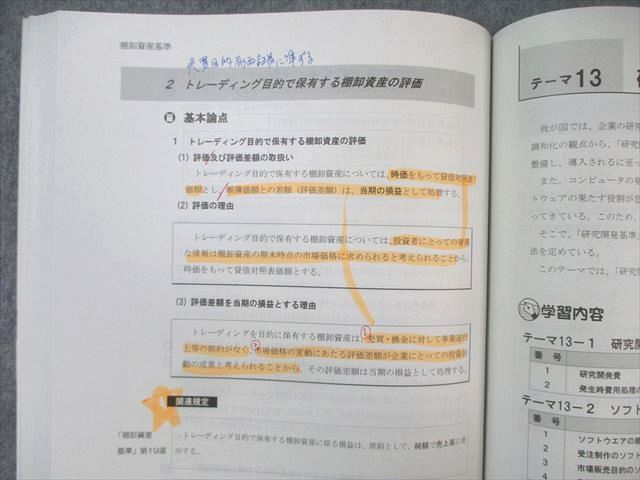 棚卸資産基準
売買目的有価証券に準ずる
2 トレーディング目的で保有する棚卸資産の評価
基本論点
1 トレーディング目的で保有する棚卸資産の評価
(1) 評価及び評価差額の取扱い
トレーディング目的で保有する棚卸資産については、時価をもって貸借対照表
価額とし、帳簿価額との差額(評価差額)は、当期の損益として処理する。
(2) 評価の理由
トレーディング目的で保有する棚卸資産については、投資者にとっての有用
な情報は棚卸資産の期末時点の市場価格に求められると考えられることから、
時価をもって貸借対照表価額とする。
(3) 評価差額を当期の損益とする理由
トレーディングを目的に保有する棚卸資産は、①売買・換金に対して事業遂行
上等の制約がなく、②市場価格の変動にあたる評価差額が企業にとっての投資活
動の成果と考えられることから、その評価差額は当期の損益として処理する。
関連規定
「棚卸資産
基準」第19項
トレーディング目的で保有する棚卸資産に係る損益は、原則として、純額で売上高に表
示する。
テーマ13
我が国では、企業の研究
調和化の観点から、「研究
整備し、導入されるに至っ
また、コンピュータの発
トウェアの果たす役割が
ってきている。このため、
そこで、「研究開発基準」
法を定めている。
このテーマでは、「研究
学習内容
テーマ13-1 研究開
番 号
1 研究開発費
2 発生時費用処理の
テーマ13-2 ソフト
番 号
1 ソフトウエアの
2 受注制作のソフ
3 市場販売目的の
4